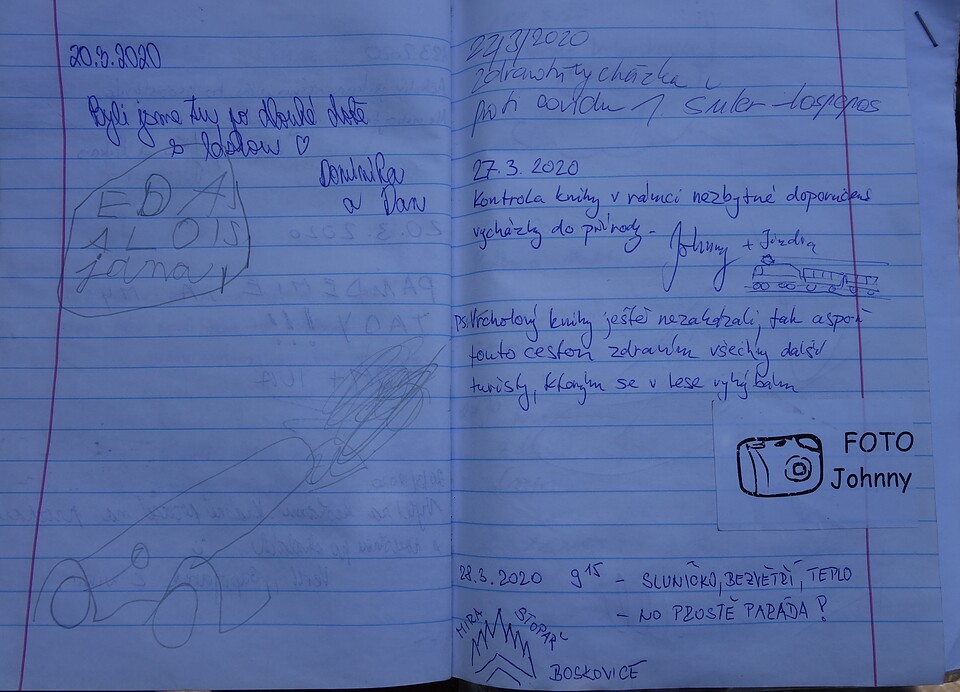 20.3.2020
Byli jsme tu po dlouhé době
s láskou ♡
Dominika
a Dan
EDA
ALOIS
jana
22/3/2020
zdravotní vycházka
proti covidu
27. 3. 2020
Kontrola knihy v rámci nezbytné doporučené
vycházky do přírody.
Johnny + Jindra
PS: Vrcholový knihy ještě nezakázali, tak aspoň
touto cestou zdravím všechny další
turisty, kterým se v lese vyhýbám
FOTO
Johnny
28.3.2020 9 15 - SLUNÍČKO, BEZVĚTŘÍ, TEPLO
- NO PROSTĚ PARÁDA!
MIRA STOPAŘ
BOSKOVICE